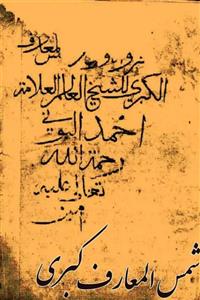 شمس المعارف
الكبرى للشيخ العالم العلامة
احمد البوني
رحمة الله
تعالى عليه
امين
شمس المعارف كبرى